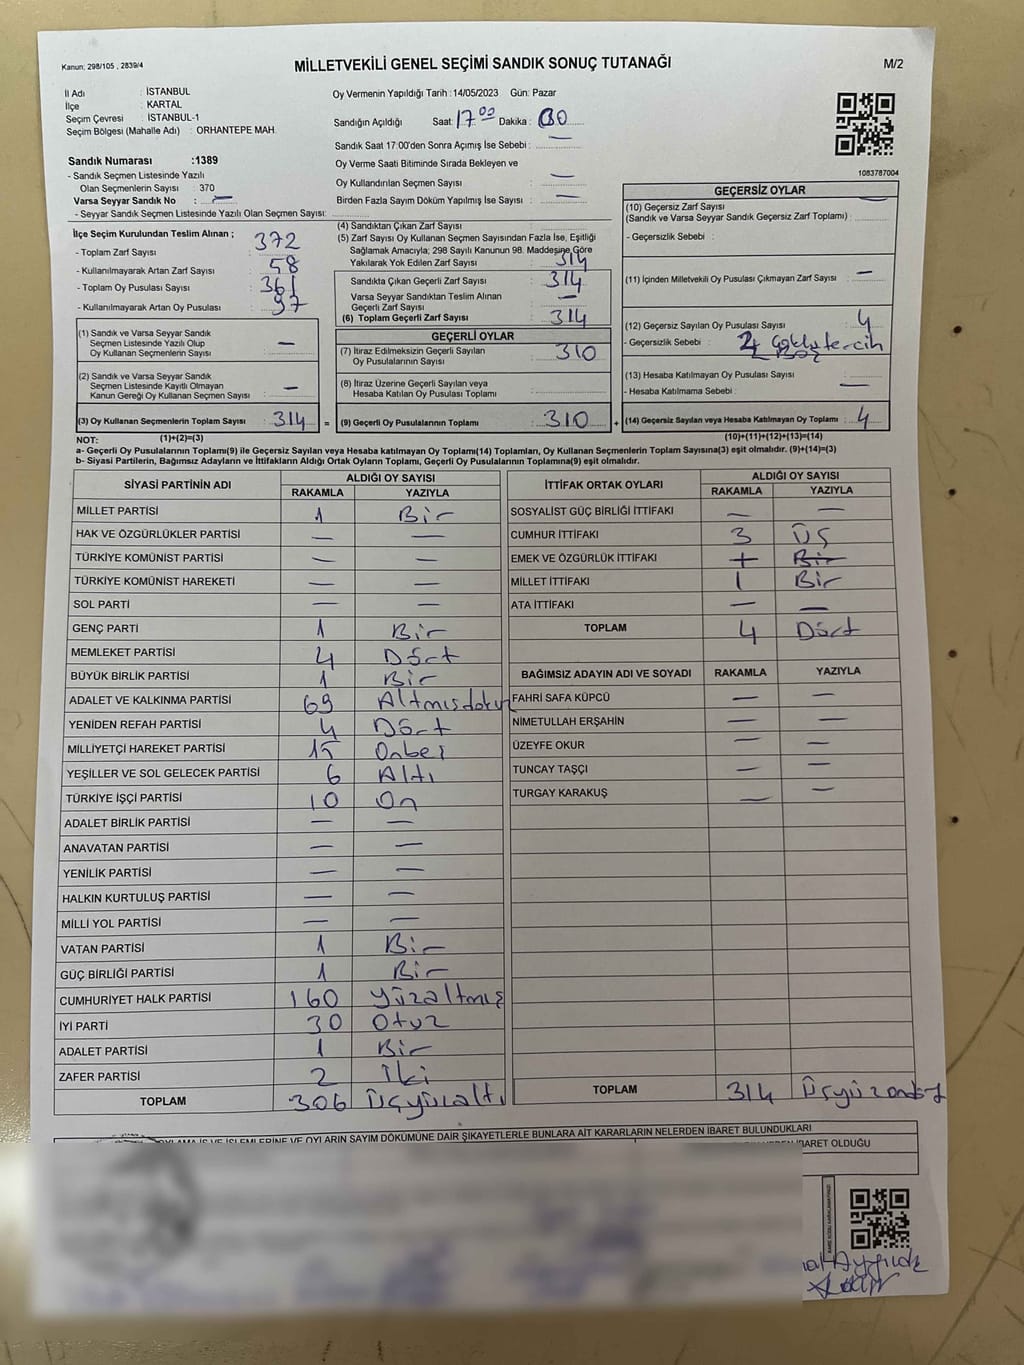 Kanun; 298/105 , 2839/4
MİLLETVEKİLİ GENEL SEÇİMİ SANDIK SONUÇ TUTANAĞI
M/2
İl Adı : İSTANBUL
İlçe : KARTAL
Seçim Çevresi : İSTANBUL-1
Seçim Bölgesi (Mahalle Adı) : ORHANTEPE MAH.
Sandık Numarası :1389
- Sandık Seçmen Listesinde Yazılı
Olan Seçmenlerin Sayısı : 370
Varsa Seyyar Sandık No : —
- Seyyar Sandık Seçmen Listesinde Yazılı Olan Seçmen Sayısı:
Oy Vermenin Yapıldığı Tarih :14/05/2023 Gün: Pazar
Sandığın Açıldığı Saat: 17.00 Dakika :
Sandık Saat 17:00'den Sonra Açımış İse Sebebi : —
Oy Verme Saati Bitiminde Sırada Bekleyen ve
Oy Kullandırılan Seçmen Sayısı —
Birden Fazla Sayım Döküm Yapılmış İse Sayısı —
1083787004
İlçe Seçim Kurulundan Teslim Alınan ;
- Toplam Zarf Sayısı : 372
- Kullanılmayarak Artan Zarf Sayısı : 58
- Toplam Oy Pusulası Sayısı : 361
- Kullanılmayarak Artan Oy Pusulası : 97
(1) Sandık ve Varsa Seyyar Sandık
Seçmen Listesinde Yazılı Olup
Oy Kullanan Seçmenlerin Sayısı : —
(2) Sandık ve Varsa Seyyar Sandık
Seçmen Listesinde Kayıtlı Olmayan
Kanun Gereği Oy Kullanan Seçmen Sayısı : —
(3) Oy Kullanan Seçmenlerin Toplam Sayısı : 314 =
(4) Sandıktan Çıkan Zarf Sayısı
(5) Zarf Sayısı Oy Kullanan Seçmen Sayısından Fazla İse, Eşitliği
Sağlamak Amacıyla; 298 Sayılı Kanunun 98. Maddesine Göre
Yakılarak Yok Edilen Zarf Sayısı : 314
Sandıkta Çıkan Geçerli Zarf Sayısı 314
Varsa Seyyar Sandıktan Teslim Alınan
Geçerli Zarf Sayısı —
(6) Toplam Geçerli Zarf Sayısı : 314
GEÇERLİ OYLAR
(7) İtiraz Edilmeksizin Geçerli Sayılan
Oy Pusulalarının Sayısı : 310
(8) İtiraz Üzerine Geçerli Sayılan veya
Hesaba Katılan Oy Pusulası Toplamı :
(9) Geçerli Oy Pusulalarının Toplamı : 310 +
GEÇERSİZ OYLAR
(10) Geçersiz Zarf Sayısı
(Sandık ve Varsa Seyyar Sandık Geçersiz Zarf Toplamı) :
- Geçersizlik Sebebi :
(11) İçinden Milletvekili Oy Pusulası Çıkmayan Zarf Sayısı : —
(12) Geçersiz Sayılan Oy Pusulası Sayısı : 4
- Geçersizlik Sebebi :
(13) Hesaba Katılmayan Oy Pusulası Sayısı :
- Hesaba Katılmama Sebebi : —
(14) Geçersiz Sayılan veya Hesaba Katılmayan Oy Toplamı : 4
NOT: (1)+(2)=(3)
(10)+(11)+(12)+(13)=(14)
a- Geçerli Oy Pusulalarının Toplamı(9) ile Geçersiz Sayılan veya Hesaba katılmayan Oy Toplamı(14) Toplamları, Oy Kullanan Seçmenlerin Toplam Sayısına(3) eşit olmalıdır. (9)+(14)=(3)
b- Siyasi Partilerin, Bağımsız Adayların ve İttifakların Aldığı Ortak Oyların Toplamı, Geçerli Oy Pusulalarının Toplamına(9) eşit olmalıdır.
SİYASİ PARTİNİN ADI ALDIĞI OY SAYISI
RAKAMLA YAZIYLA
MİLLET PARTİSİ 1 Bir
HAK VE ÖZGÜRLÜKLER PARTİSİ — —
TÜRKİYE KOMÜNİST PARTİSİ — —
TÜRKİYE KOMÜNİST HAREKETİ — —
SOL PARTİ — —
GENÇ PARTİ 1 Bir
MEMLEKET PARTİSİ 4 Dört
BÜYÜK BİRLİK PARTİSİ 1 Bir
ADALET VE KALKINMA PARTİSİ 69 Altmışdokuz
YENİDEN REFAH PARTİSİ 4 Dört
MİLLİYETÇİ HAREKET PARTİSİ 15 Onbeş
YEŞİLLER VE SOL GELECEK PARTİSİ 6 Altı
TÜRKİYE İŞÇİ PARTİSİ 10 On
ADALET BİRLİK PARTİSİ — —
ANAVATAN PARTİSİ — —
YENİLİK PARTİSİ — —
HALKIN KURTULUŞ PARTİSİ — —
MİLLİ YOL PARTİSİ — —
VATAN PARTİSİ 1 Bir
GÜÇ BİRLİĞİ PARTİSİ 1 Bir
CUMHURİYET HALK PARTİSİ 160 Yüzaltmış
İYİ PARTİ 30 Otuz
ADALET PARTİSİ 1 Bir
ZAFER PARTİSİ 2 İki
TOPLAM 306 Üçyüzaltı
İTTİFAK ORTAK OYLARI ALDIĞI OY SAYISI
RAKAMLA YAZIYLA
SOSYALİST GÜÇ BİRLİĞİ İTTİFAKI — —
CUMHUR İTTİFAKI 3 Üç
EMEK VE ÖZGÜRLÜK İTTİFAKI
MİLLET İTTİFAKI 1 Bir
ATA İTTİFAKI — —
TOPLAM 4 Dört
BAĞIMSIZ ADAYIN ADI VE SOYADI RAKAMLA YAZIYLA
FAHRİ SAFA KÜPCÜ — —
NİMETULLAH ERŞAHİN — —
ÜZEYFE OKUR — —
TUNCAY TAŞÇI — —
TURGAY KARAKUŞ — —
TOPLAM 314 Üçyüzondört
OYLAMA İŞ VE İŞLEMLERİNE VE OYLARIN SAYIM DÖKÜMÜNE DAİR ŞİKAYETLERLE BUNLARA AİT KARARLARIN NELERDEN İBARET BULUNDUKLARI
İBARET OLDUĞU